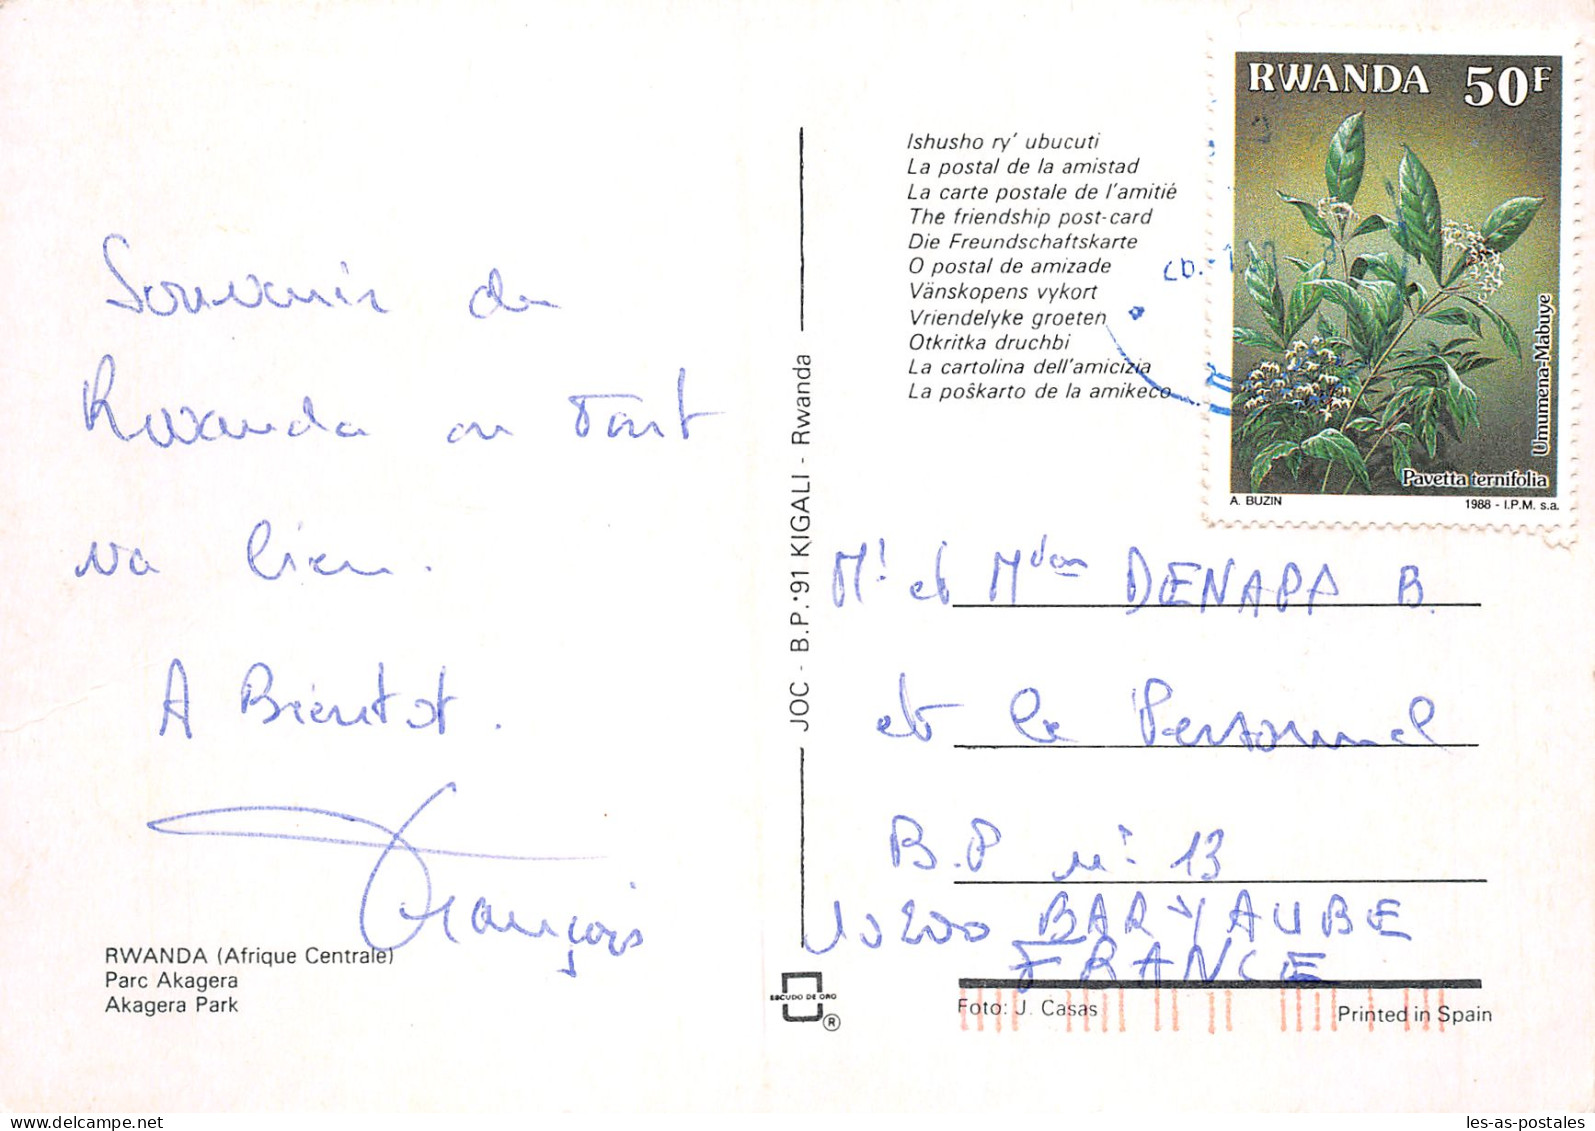 Souvenir du
Rwanda ou Tout
va bien.
A Bientot.
François
RWANDA (Afrique Centrale)
Parc Akagera
Akagera Park
JOC - B.P. 91 KIGALI - Rwanda
ESCUDO DE ORO
®
Ishusho ry' ubucuti
La postal de la amistad
La carte postale de l'amitié
The friendship post-card
Die Freundschaftskarte
O postal de amizade
Vänskopens vykort
Vriendelyke groeten
Otkritka druchbi
La cartolina dell'amicizia
La poŝkarto de la amikeco
RWANDA 50F
Umumena-Mabuye
Pavetta ternifolia
A. BUZIN 1988 - I.P.M. s.a.
Mr et Mdam DENAPP B.
et le Personnel
B.P n° 13
10200 BAR S/ AUBE
FRANCE
Foto: J. Casas Printed in Spain
les-as-postales